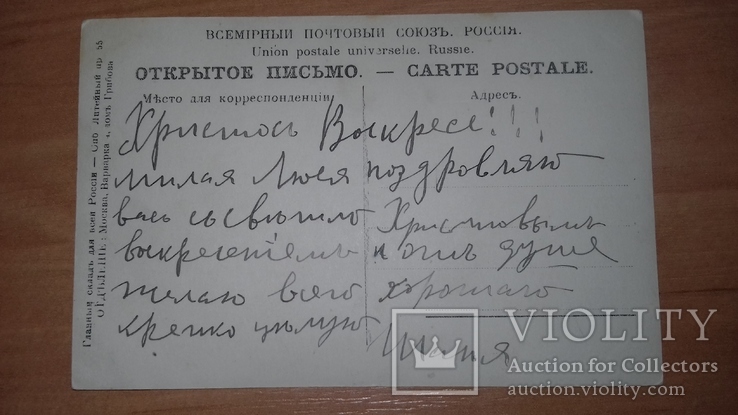 ВСЕМІРНЫЙ ПОЧТОВЫЙ СОЮЗЪ. РОССІЯ.
Union postale universelle. Russie.
ОТКРЫТОЕ ПИСЬМО. — CARTE POSTALE.
Мѣсто для корреспонденціи
Адресъ.
Христосъ Воскресе!!!
милая Люся поздровляю
васъ съ свѣтло Христовымъ
воскресеніемъ и отъ души
желаю всего хорошаго
крепко цѣлую
Главный складъ для всей Россіи — Спб Литейный пр 55
ОТДѢЛЕНІЕ: Москва, Варварка, домъ Грибова
VIOLITY
Auction for Collectors
auction.violity.com